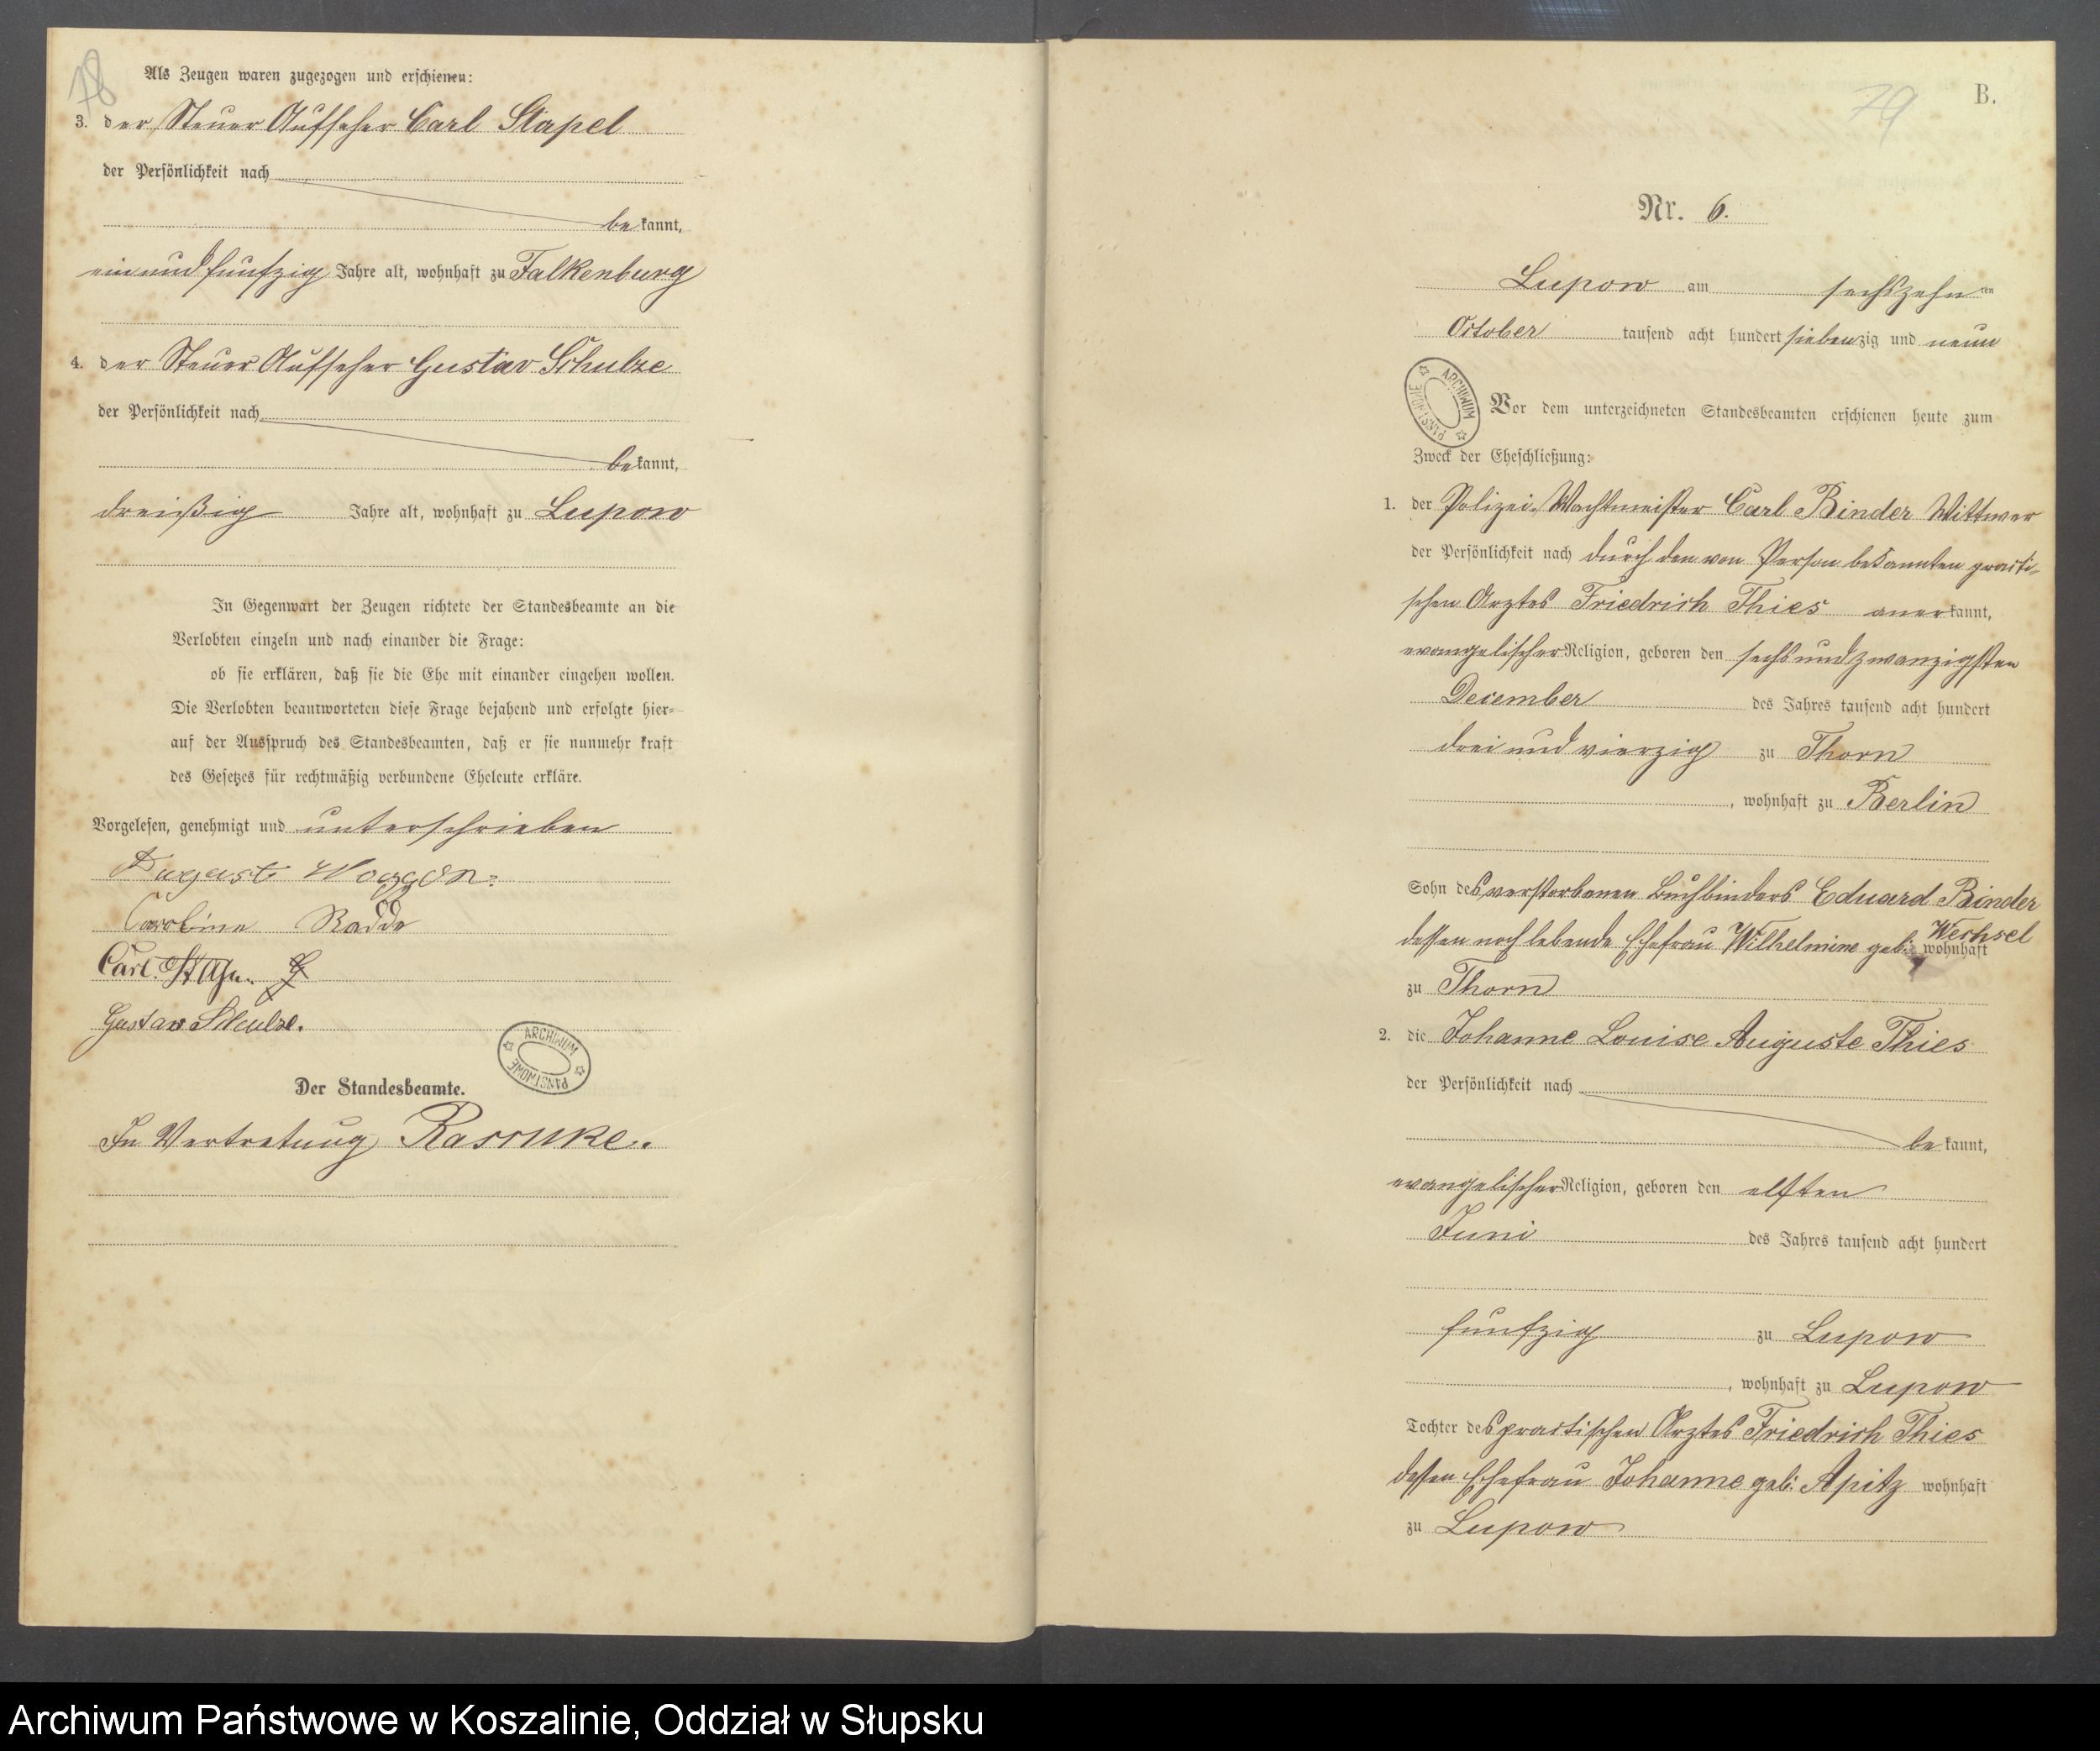 78
Als Zeugen waren zugezogen und erschienen:
3. der Steuer Aufseher Carl Stapel
der Persönlichkeit nach
bekannt,
ein und funfzig Jahre alt, wohnhaft zu Falkenburg
4. der Steuer Aufseher Gustav Schulze
der Persönlichkeit nach
bekannt,
dreißig Jahre alt, wohnhaft zu Lupow
In Gegenwart der Zeugen richtete der Standesbeamte an die
Verlobten einzeln und nach einander die Frage:
ob sie erklären, daß sie die Ehe mit einander eingehen wollen.
Die Verlobten beantworteten diese Frage bejahend und erfolgte hier-
auf der Ausspruch des Standesbeamten, daß er sie nunmehr kraft
des Gesetzes für rechtmäßig verbundene Eheleute erkläre.
Vorgelesen, genehmigt und unterschrieben
August Woggon
Caroline Radde
Carl
Gustav Schulze.
ARCHIWUM PAŃSTWOWE
Der Standesbeamte.
In Vertretung
79
B.
Nr. 6.
Lupow am sechszehnten
October tausend acht hundert siebenzig und neun
ARCHIWUM PAŃSTWOWE
Vor dem unterzeichneten Standesbeamten erschienen heute zum
Zweck der Eheschließung:
1. der Polizei-Wachtmeister Carl Binder Wittwer
der Persönlichkeit nach durch den von Person bekannten practi-
schen Arztes Friedrich Thies anerkannt,
evangelischer Religion, geboren den sechs und zwanzigsten
December des Jahres tausend acht hundert
drei und vierzig zu Thorn
, wohnhaft zu Berlin
Sohn des verstorbenen Buchbinders Eduard Binder
dessen noch lebende Ehefrau Wilhelmine geb: Wechsel wohnhaft
zu Thorn
2. die Johanne Louise Auguste Thies
der Persönlichkeit nach
bekannt,
evangelischer Religion, geboren den elften
Juni des Jahres tausend acht hundert
funfzig zu Lupow
, wohnhaft zu Lupow
Tochter des practischen Arztes Friedrich Thies
dessen Ehefrau Johanne geb: Apitz wohnhaft
zu Lupow
Archiwum Państwowe w Koszalinie, Oddział w Słupsku